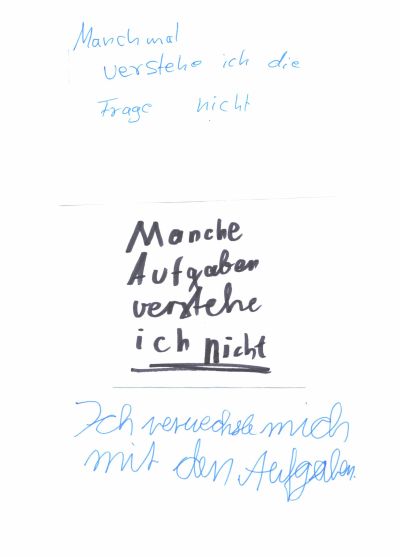 Manchmal
verstehe ich die
Frage nicht
Manche
Aufgaben
verstehe
ich nicht
Ich verwechsle mich
mit den Aufgaben.